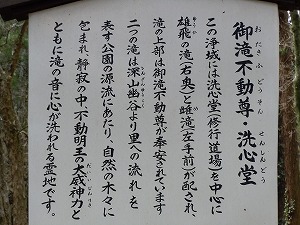 御滝不動尊・洗心堂
おたきふどうそん せんしんどう
この浄域には洗心堂(修行道場)を中心に
雄飛の滝(右奥)と雌滝(左手前)が配され、
滝の上部は御滝不動尊が奉安されています
二つの滝は深山幽谷より里への流れを
表す公園の源流にあたり、自然の木々に
包まれ、静寂の中、不動明王の大威神力と
ともに滝の音に心が洗われる霊地です。